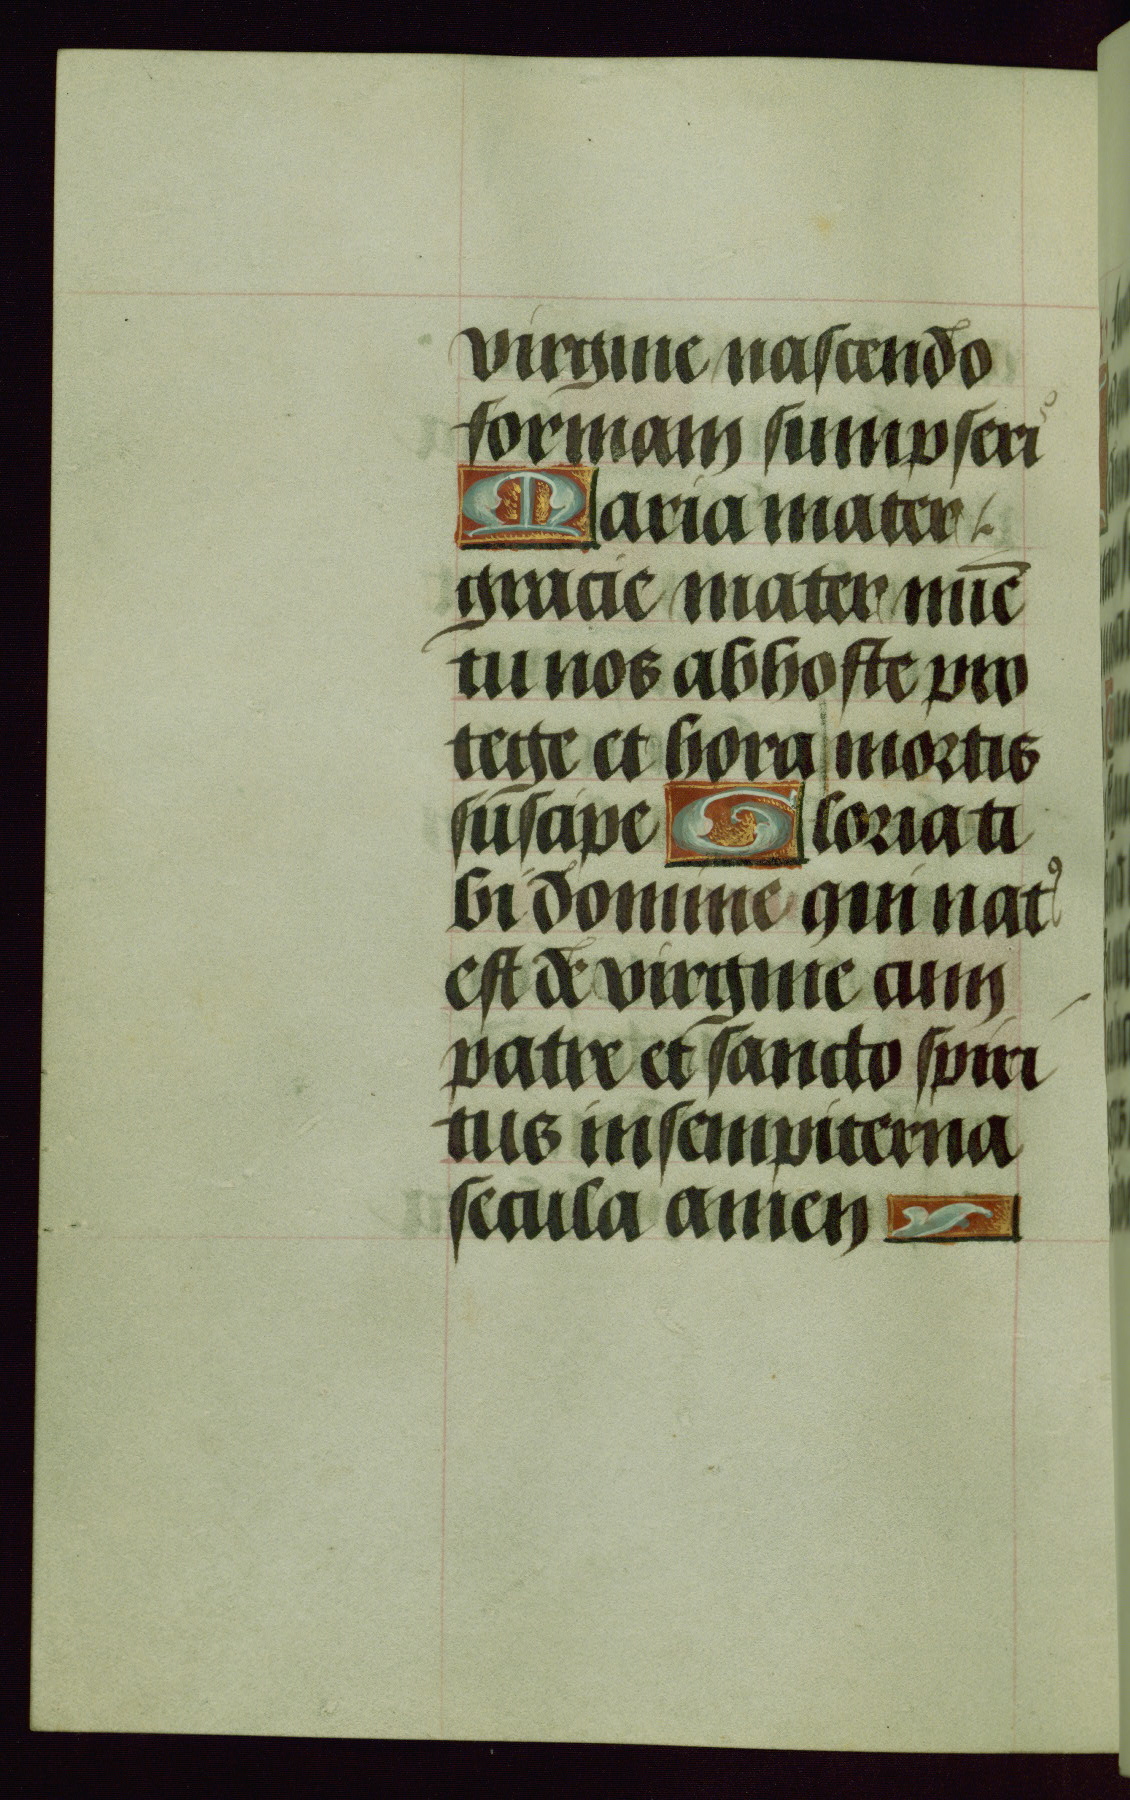 virgine nascendo
formam sumpseris
Maria mater
gracie mater mie̅
tu nos ab hoste pro
tege et hora mortis
suscipe Gloria ti
bi domine qui natꝰ
est de virgine cum
patre et sancto spiri
tus in sempiterna
secula amen